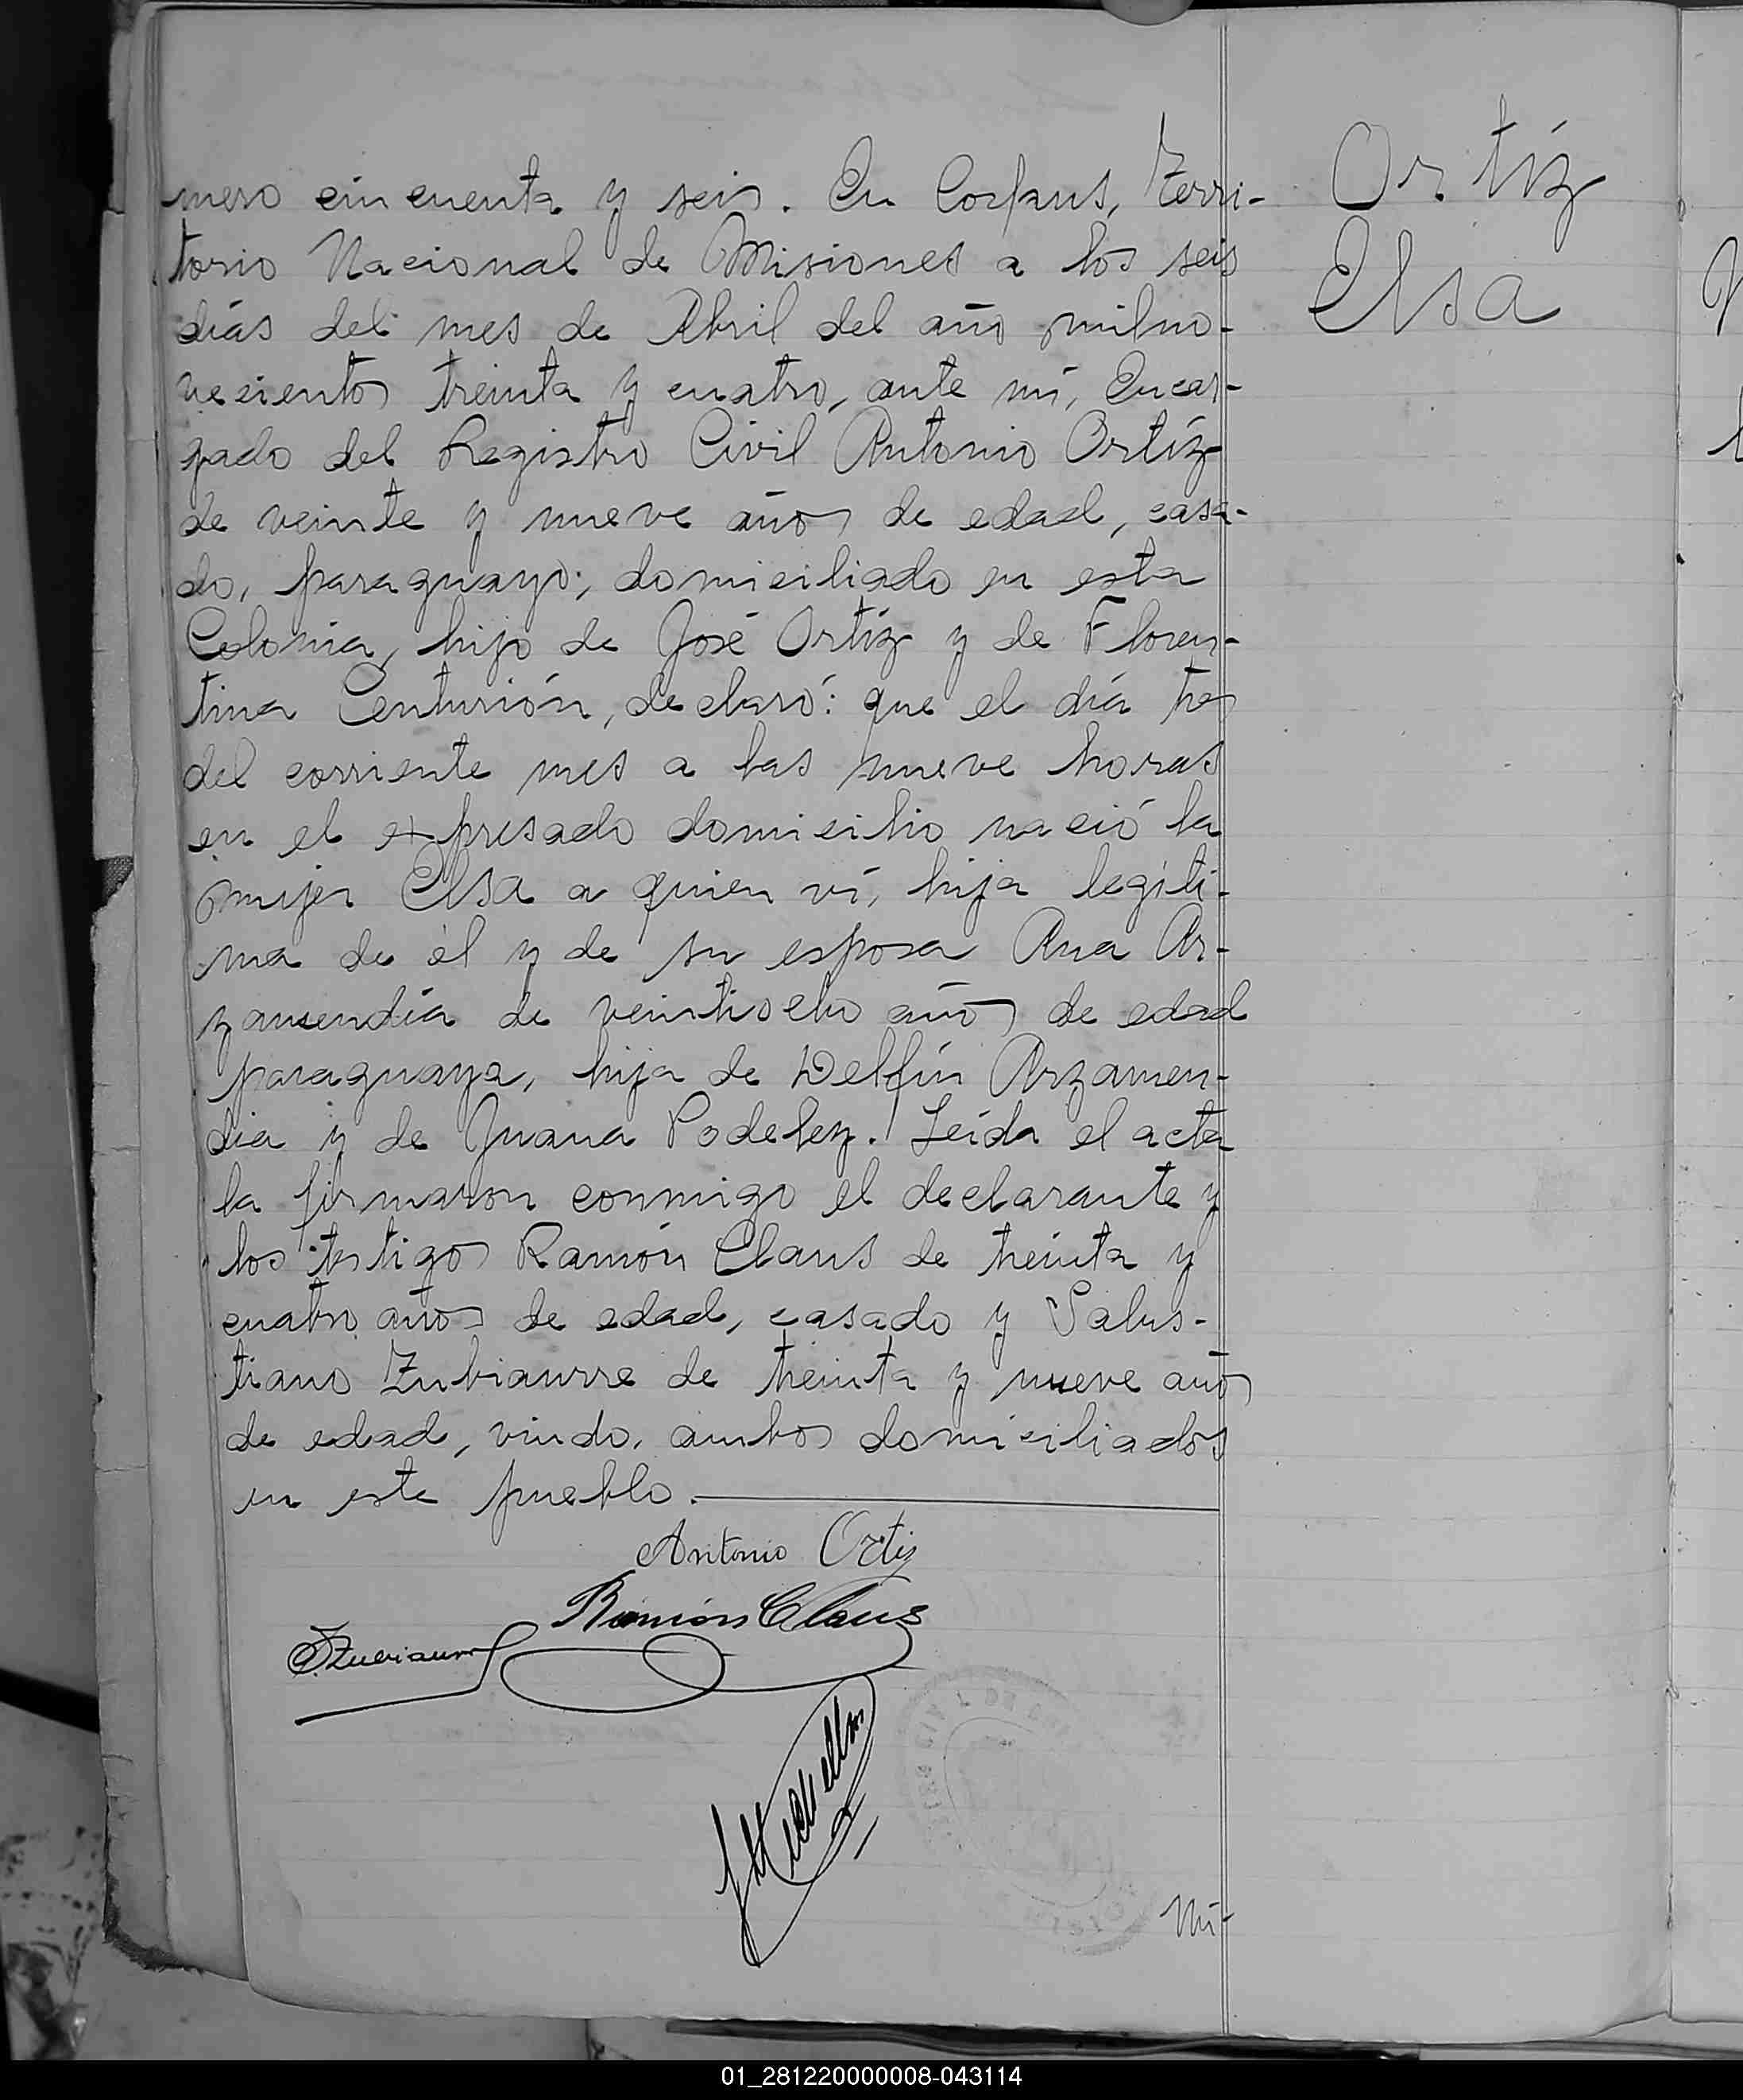 mero cincuenta y seis. En Corpus, Terri-
torio Nacional de Misiones a los seis
días del mes de Abril del año milno-
vecientos treinta y cuatro, ante mí, Encar-
gado del Registro Civil Antonio Ortíz
de veinte y nueve años de edad, casa-
do, paraguayo; domiciliado en esta
Colonia, hijo de José Ortíz y de Floren-
tina Centurión, declaró: que el día tres
del corriente mes a las nueve horas
en el expresado domicilio nació la
mujer Elsa a quien ví, hija legíti-
ma de él y de su esposa Ana Ar-
zamendia de veintiocho años de edad
paraguaya, hija de Delfín Arzamen-
dia y de Juana Podeley. Leída el acta
la firmaron conmigo el declarante y
los testigos Ramón Claus de treinta y
cuatro años de edad, casado y Salus-
tiano Zubiaurre de treinta y nueve años
de edad, viudo, ambos domiciliados
en este pueblo.
Antonio Ortiz
Ramón Claus
S. Zubiaurre
Nú-
Ortíz
Elsa
01_281220000008-043114